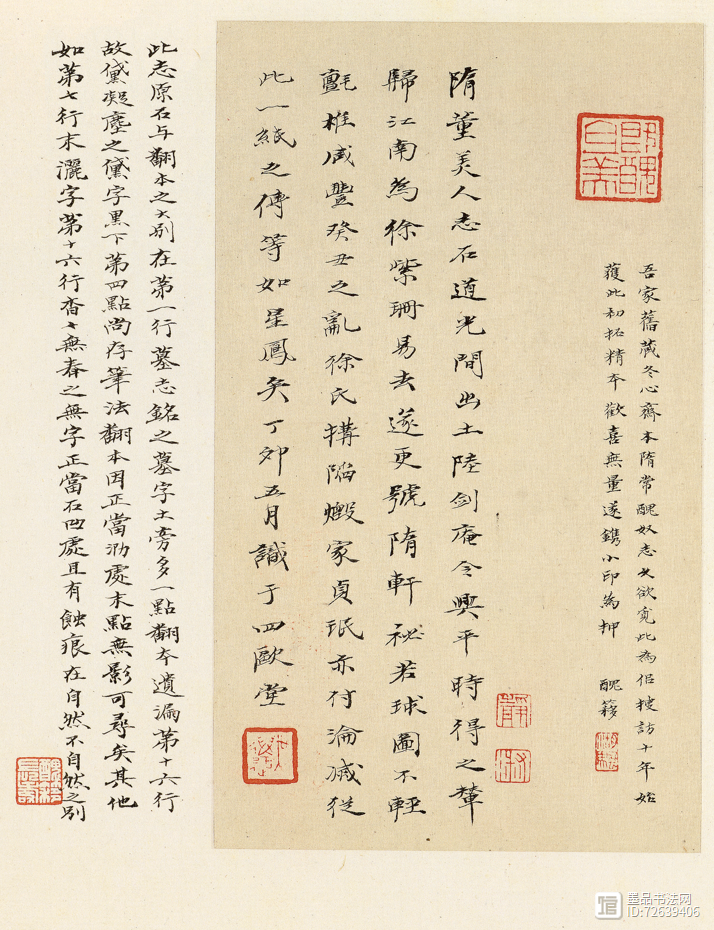 吾家舊藏冬心齋本隋常醜奴志久欲覓此為侶搜訪十年始
獲此初拓精本歡喜無量遂鐫小印為押 醜簃
隋董美人志石道光間出土陸劍庵令興平時得之輦
歸江南為徐紫珊易去遂更號隋軒祕若球圖不輕
氈椎咸豐癸丑之亂徐氏搆陷燬家貞珉亦付淪滅從
此一紙之傳等如星鳳矣丁卯五月識于四歐堂
此志原石与翻本之大別在第一行墓志銘之墓字土旁多一點翻本遺漏第十六行
故黛凝塵之黛字黑下第四點尚存筆法翻本因正當泐處末點無影可尋矣其他
如第七行末灑字第十六行杳杳無春之無字正當石凹處且有蝕痕在自然不自然之別
墨品书法网
ID:72639406